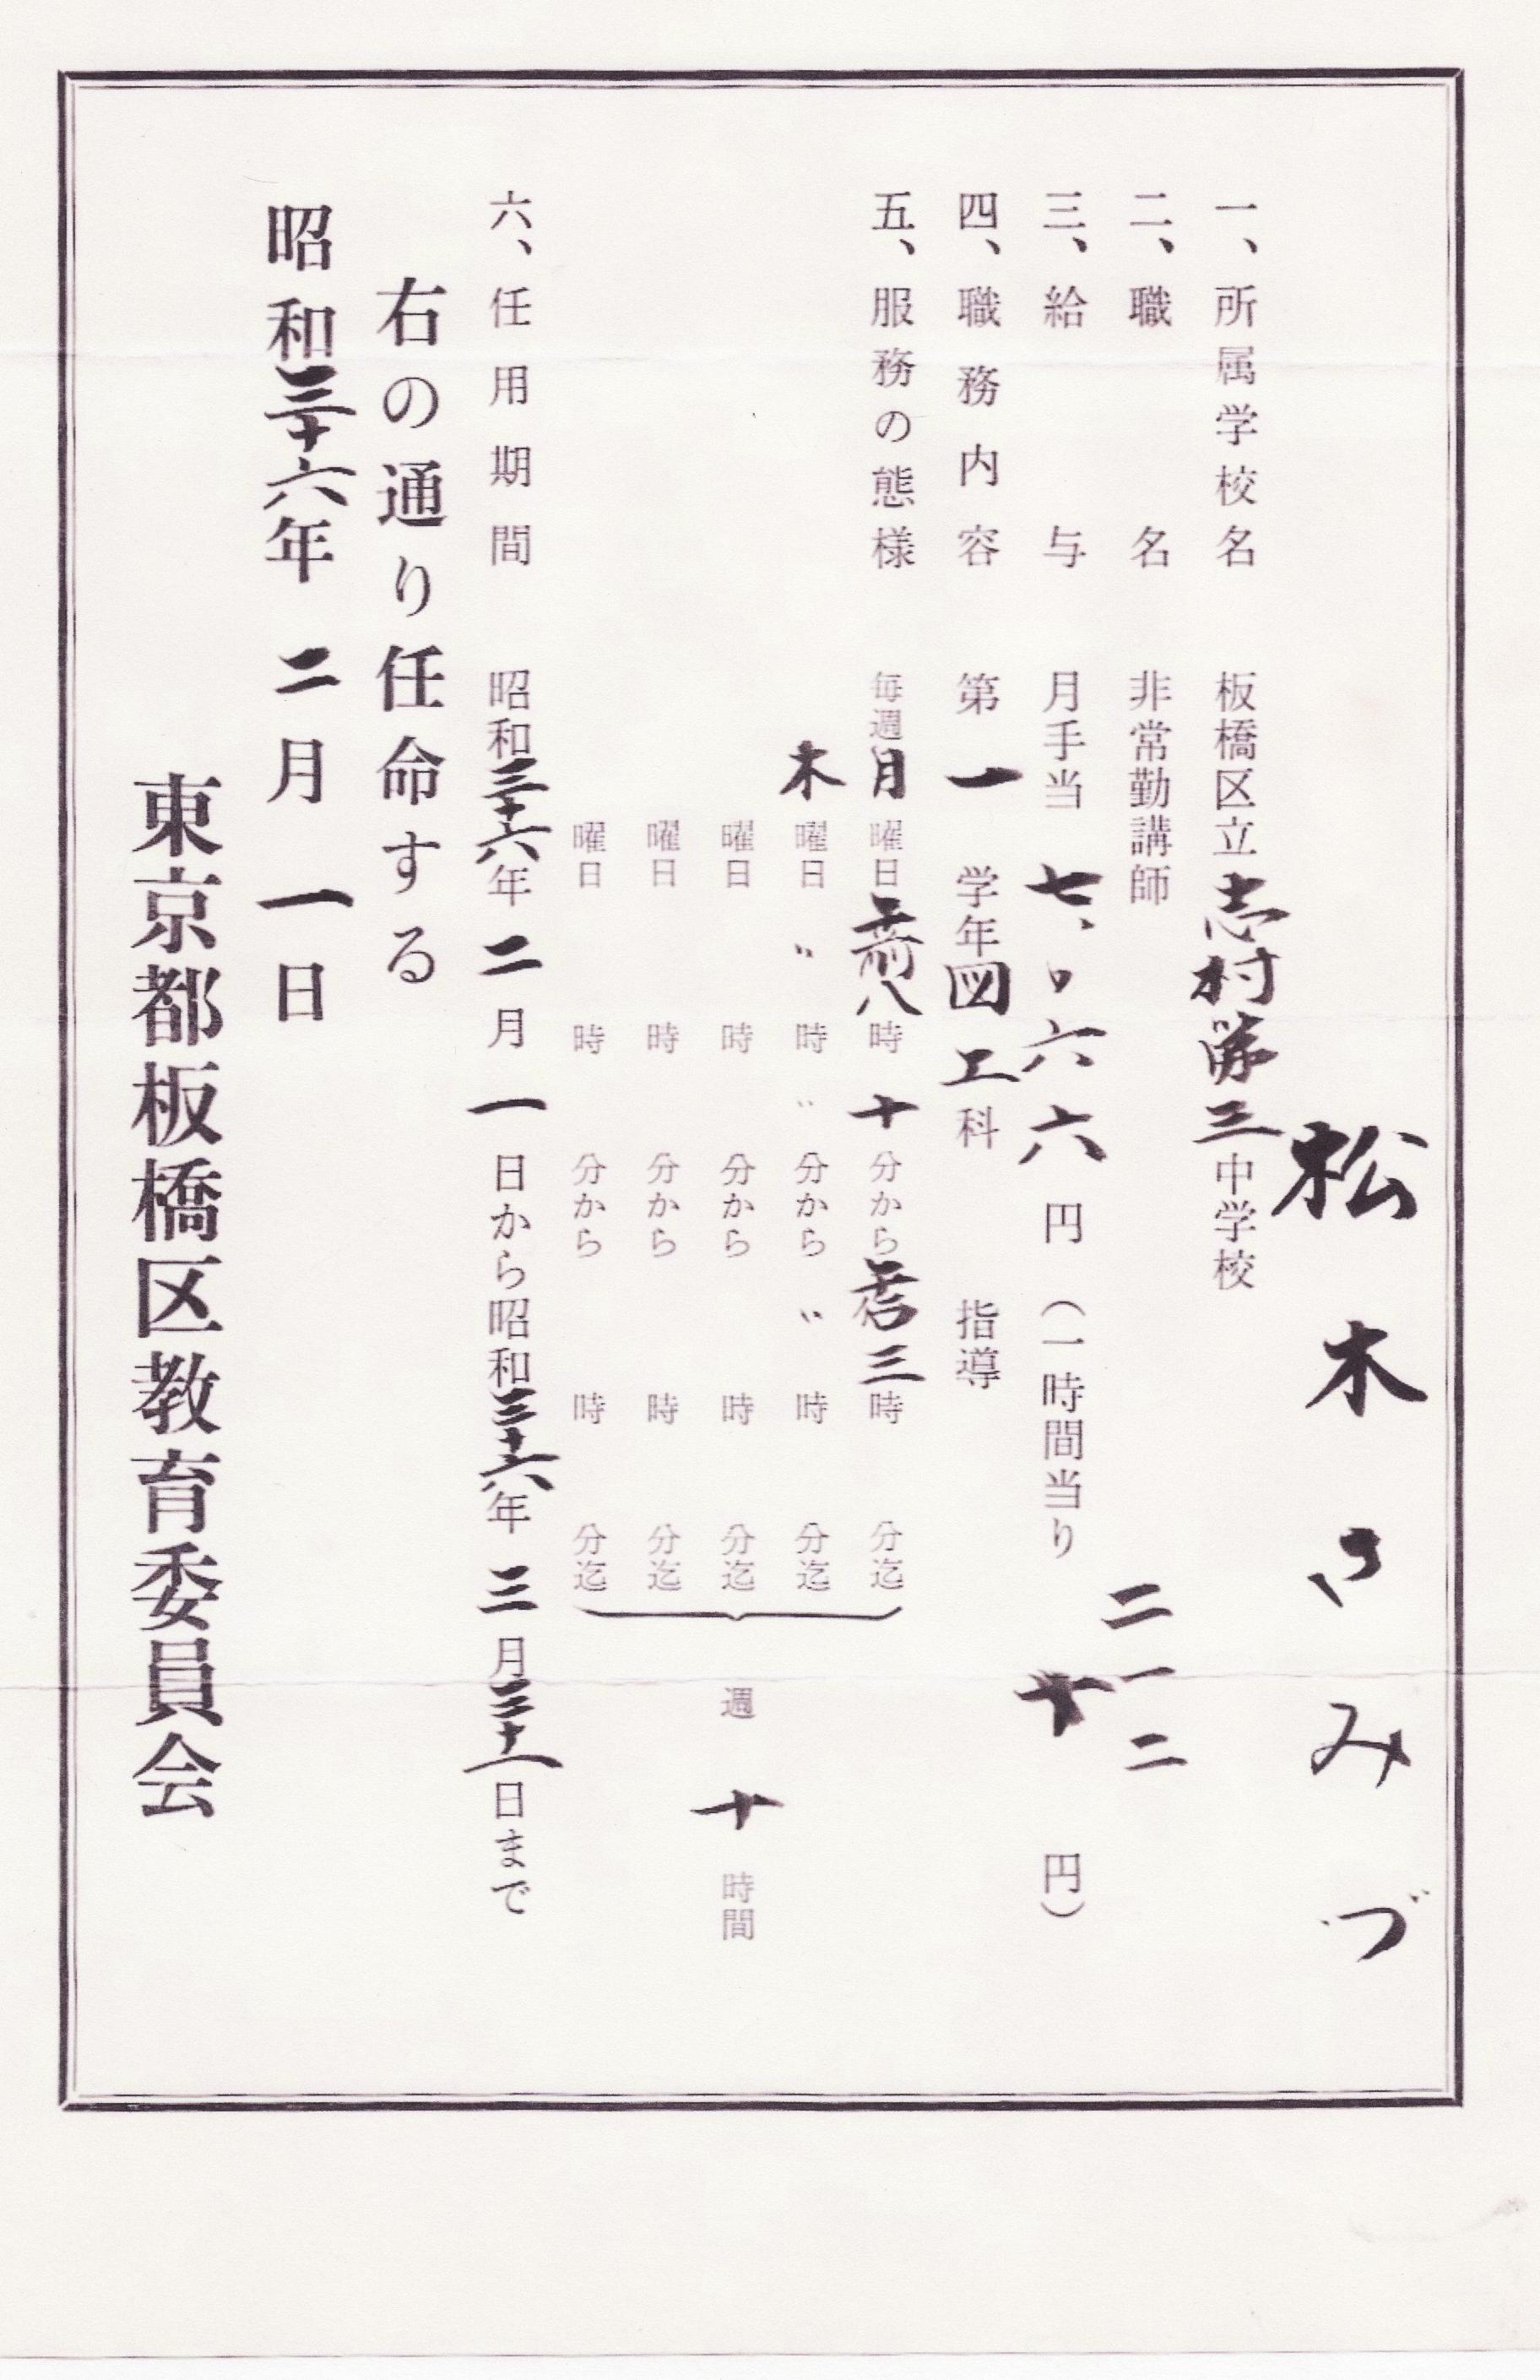 松木きみづ
一、所属学校名 板橋区立志村第三中学校
二、職名 非常勤講師
二一二
三、給与 月手当 七、〇六六円(一時間当り 円)
四、職務内容 第一学年図工科 指導
五、服務の態様 毎週月曜日午前八時十分から午后三時 分迄
木曜日〃時〃分から〃時 分迄
曜日 時 分から 時 分迄 週十時間
曜日 時 分から 時 分迄
曜日 時 分から 時 分迄
六、任用期間 昭和三十六年二月一日から昭和三十六年三月三十一日まで
右の通り任命する
昭和三十六年二月一日
東京都板橋区教育委員会